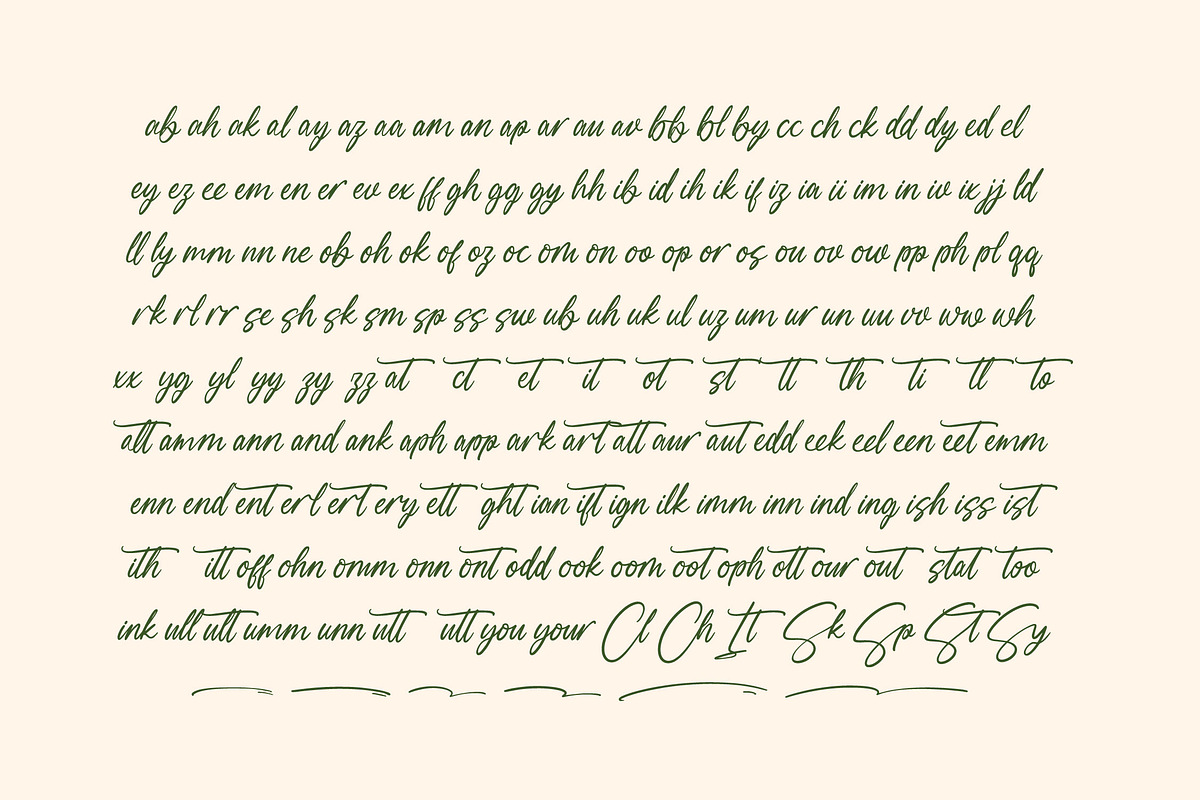 ab ah ak al ay az aa am an ap ar au av bb bl by cc ch ck dd dy ed el
ey ez ee em en er ev ex ff gh gg gy hh ib id ih ik if iz ia ii im in iv ix jj ld
ll ly mm nn ne ob oh ok of oz oc om on oo op or os ou ov ow pp ph pl qq
rk rl rr se sh sk sm sp ss sw ub uh uk ul uz um ur un uu vv ww wh
xx yg yl yy zy zz at ct et it ot st tt th ti tl to
att amm ann and ank aph app ark art att aur aut edd eek eel een eet emm
enn end ent erl ert ery ett ght ian ift ign ilk imm inn ind ing ish iss ist
ith itt off ohn omm onn ont odd ook oom oot oph ott our out stat too
ink ull ult umm unn utt utt you your Cl Ch It Sk Sp St Sy